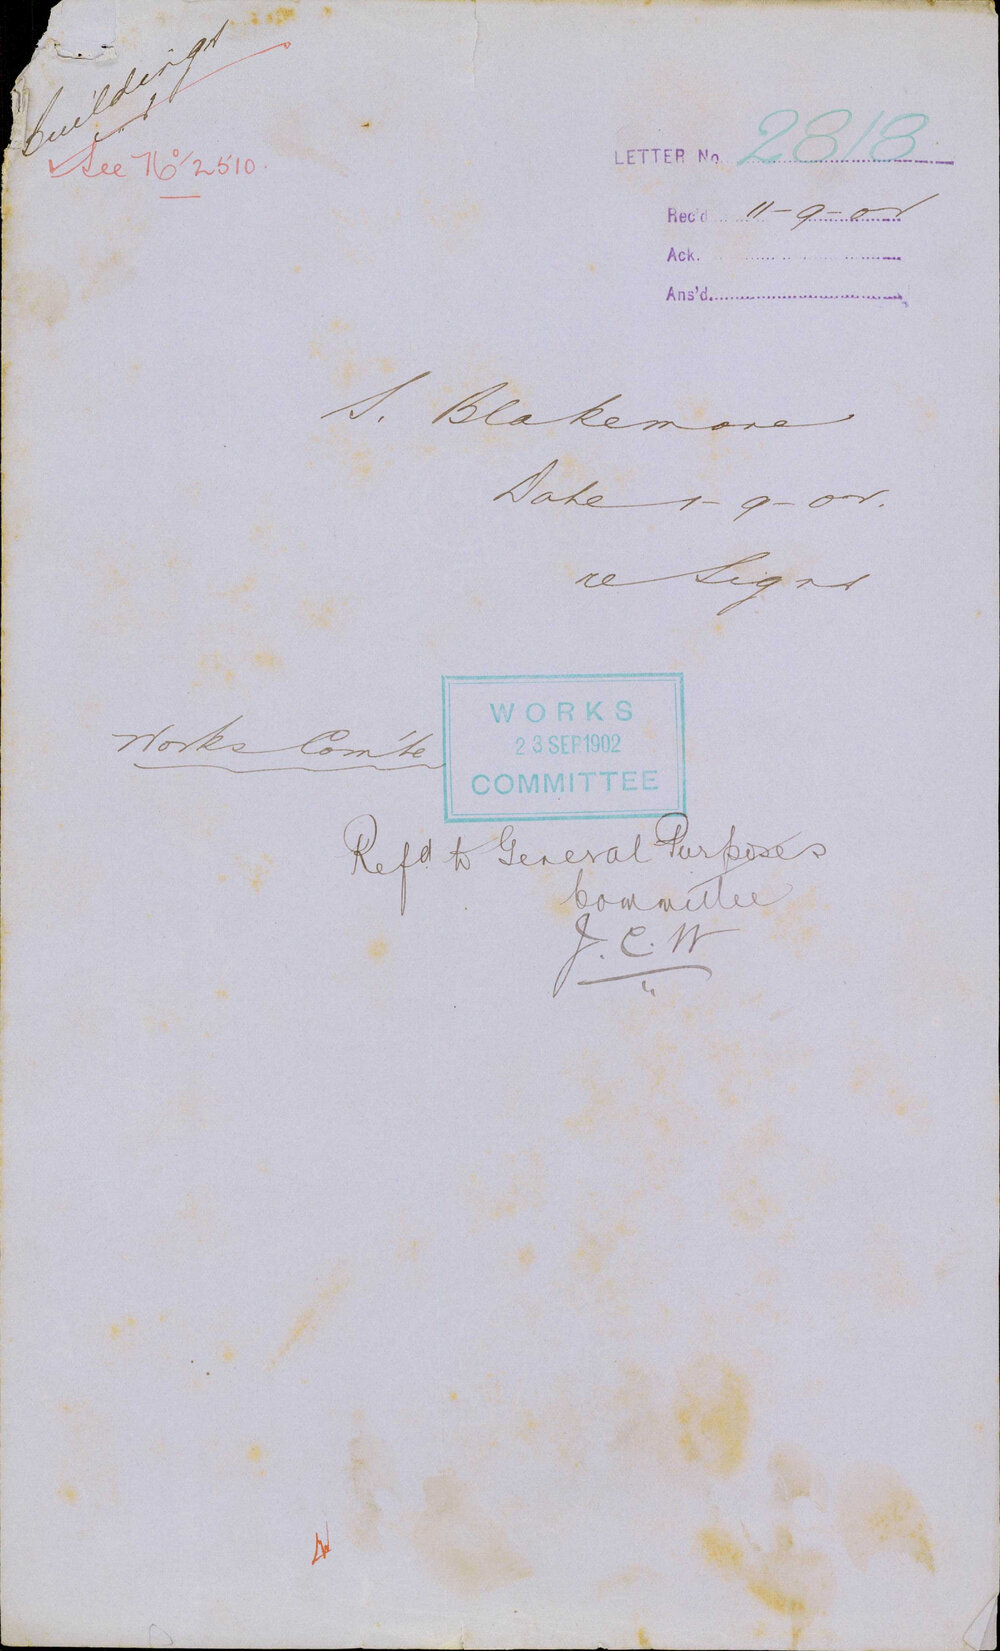 Buildings
See No 2510.
LETTER No. 2818
Rec'd 11-9-02
Ack.
Ans'd.
S. Blakemore
Date 1-9-02.
re Signs
Works Com'te
WORKS
23 SEP 1902
COMMITTEE
Refd to General Purposes
Committee
J. C. W